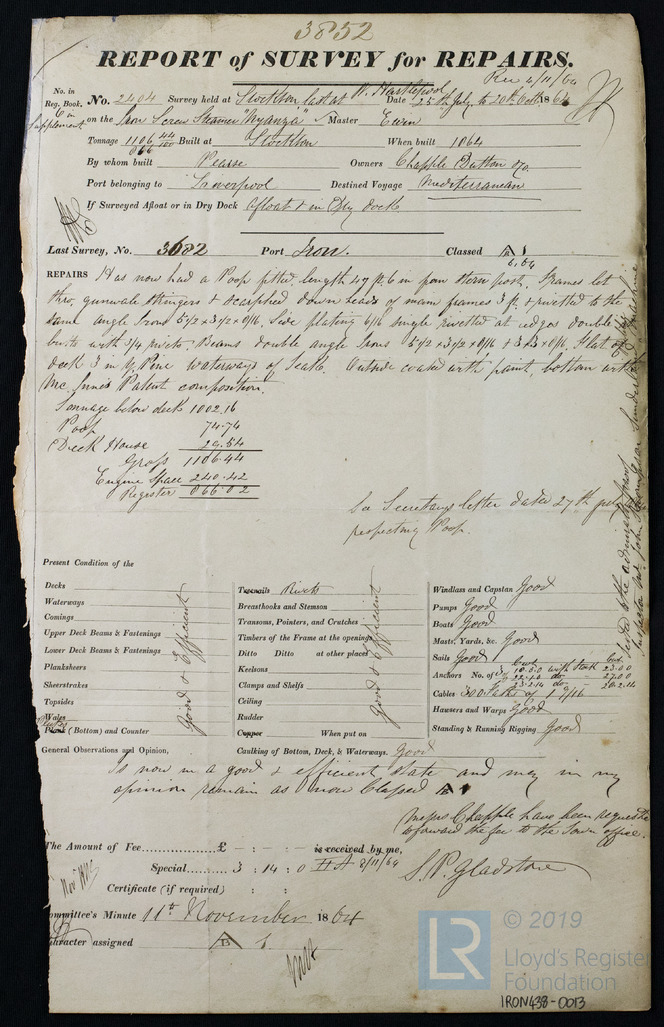 3852
REPORT of SURVEY for REPAIRS.
Rec 4/11/64
No. in Reg. Book.
in Supplement
No. 2404 Survey held at Stockton last at W. Hartlepool Date, 25th July to 20th Octr 1864
on the Iron Screw Steamer "Nyanza" Master Ewin
Tonnage 1106 44/100 Built at Stockton When built 1864
866
By whom built Pearse Owners Chapple Dutton & Co.
Port belonging to Liverpool Destined Voyage Mediterranean
If Surveyed Afloat or in Dry Dock Afloat & in Dry dock
Last Survey, No. 3682 Port Iron. Classed A 1
B
6,64
REPAIRS Has now had a Poop fitted, length 47 ft. 6 in from Stern post. Frames let
thro, gunwale stringers & scarphed down heads of main frames 3 ft. & rivetted to the
same angle Irons 5 1/2 x 3 1/2 x 8/16. Side plating 6/16 single rivetted at edges double in
butts with 3/4 rivets. Beams double angle Irons 5 1/2 x 3 1/2 x 8/16 & 3 x 3 x 6/16. Flat of
deck 3 in Y. Pine waterways of Teak. Outside coated with paint, bottom with
Mc. Innes Patent composition.
Tonnage below deck 1002.16
Poop 74.74
Deck House 29.54
Gross 1106.44
Engine Space 240.42
Register 866.02
See Secretary's letter dated 27th July
respecting Poop.
Present Condition of the
Decks
Waterways
Comings
Upper Deck Beams & Fastenings
Lower Deck Beams & Fastenings
Planksheers
Sheerstrakes
Topsides
Wales
Plates
Plank (Bottom) and Counter
Good & Efficient
Treenails Rivets
Breasthooks and Stemson
Transoms, Pointers, and Crutches
Timbers of the Frame at the openings
Ditto Ditto at other places
Keelsons
Clamps and Shelfs
Ceiling
Rudder
Copper When put on
Good & efficient
Caulking of Bottom, Deck, & Waterways. Good
Windlass and Capstan Good
Pumps Good
Boats Good
Masts, Yards, &c. Good
Sails Good
Anchors No. of
with Stock
Cables 300 faths of 1 9/16
Hawsers and Warps Good
Standing & Running Rigging Good
Tested at the admiralty proof
General Observations and Opinion,
Is now in a good & efficient state and may in my
opinion remain as now Classed A 1
Messrs Chapple have been requested
to forward the fee to the Town office.
The Amount of Fee £ - : - : - is received by me,
Special 3 : 14 : 0 HA 8/11/64
Certificate (if required) : :
S. P. Gladstone
Committee's Minute 11th November 1864
Character assigned A 1
B
© 2019
LR
Lloyd's Register
Foundation
IRON438-0013